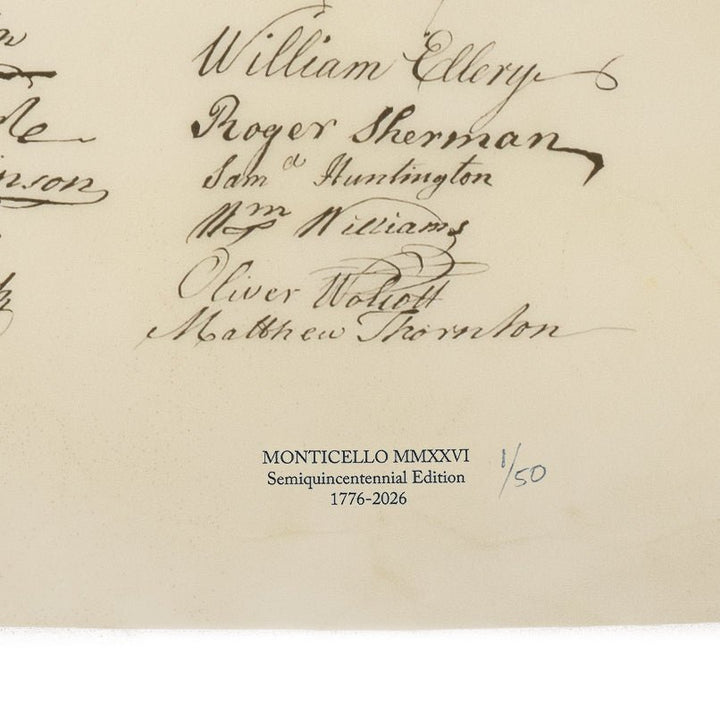 William Ellery
Roger Sherman
Samd Huntington
Wm Williams
Oliver Wolcott
Matthew Thornton
MONTICELLO MMXXVI
Semiquincentennial Edition
1776-2026
1/50